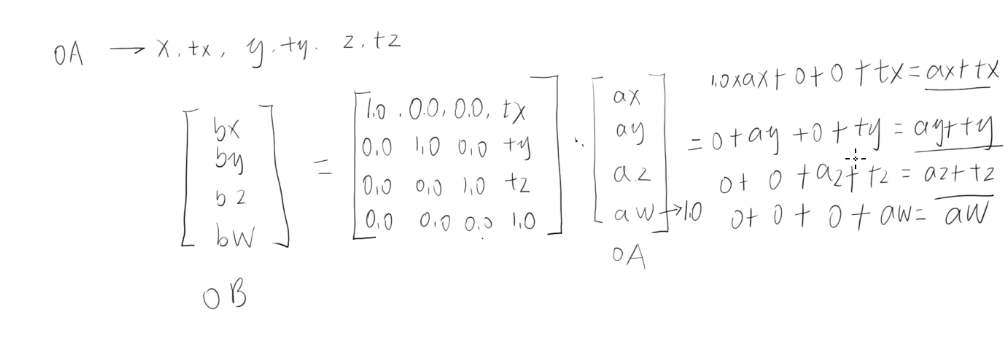 OA → x.tx, y.ty. z.tz
bx
by
bz
bw
OB
=
1.0 . 0.0, 0.0, tx
0.0 1.0 0.0 ty
0.0 0.0 1.0 tz
0.0 0.0 0.0 1.0
·
ax
ay
az
aw → 1.0
OA
1.0xax+0+0+tx=ax+tx
=0+ay+0+ty=ay+ty
0+0+az+tz=az+tz
0+0+0+aw=aw